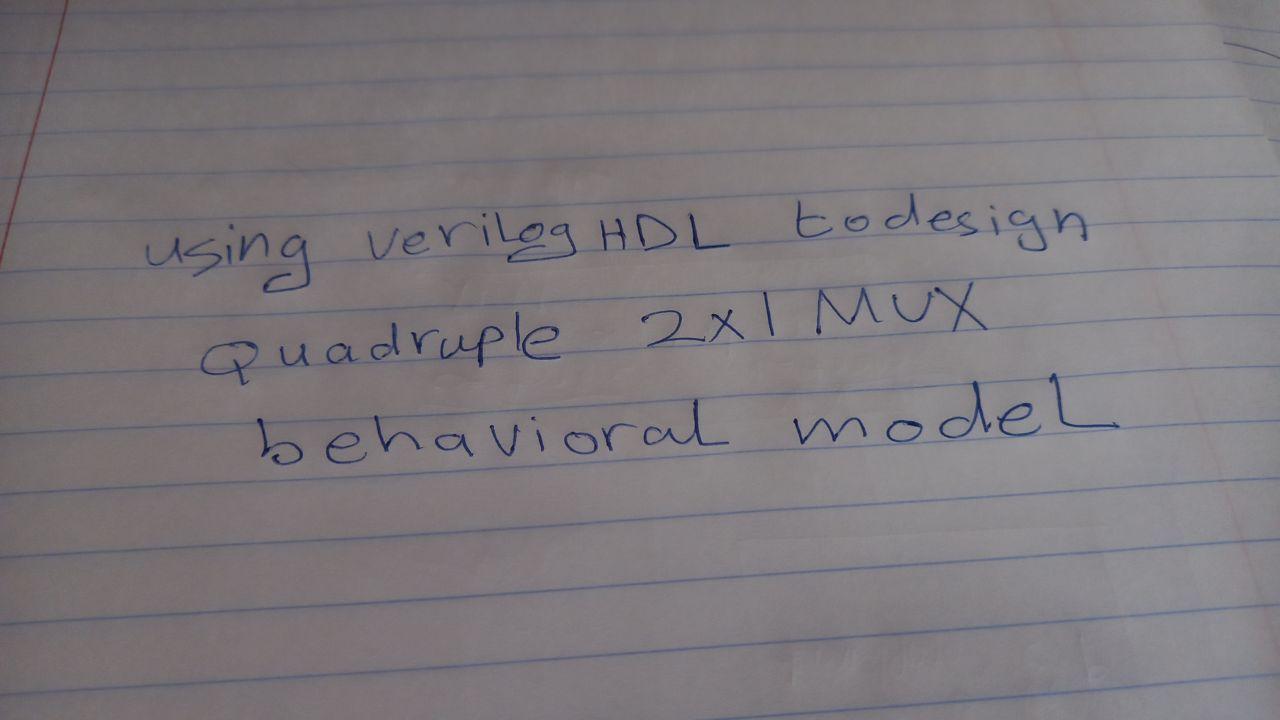 using verilog HDL todesign
Quadruple 2x1 MUX
behavioral model